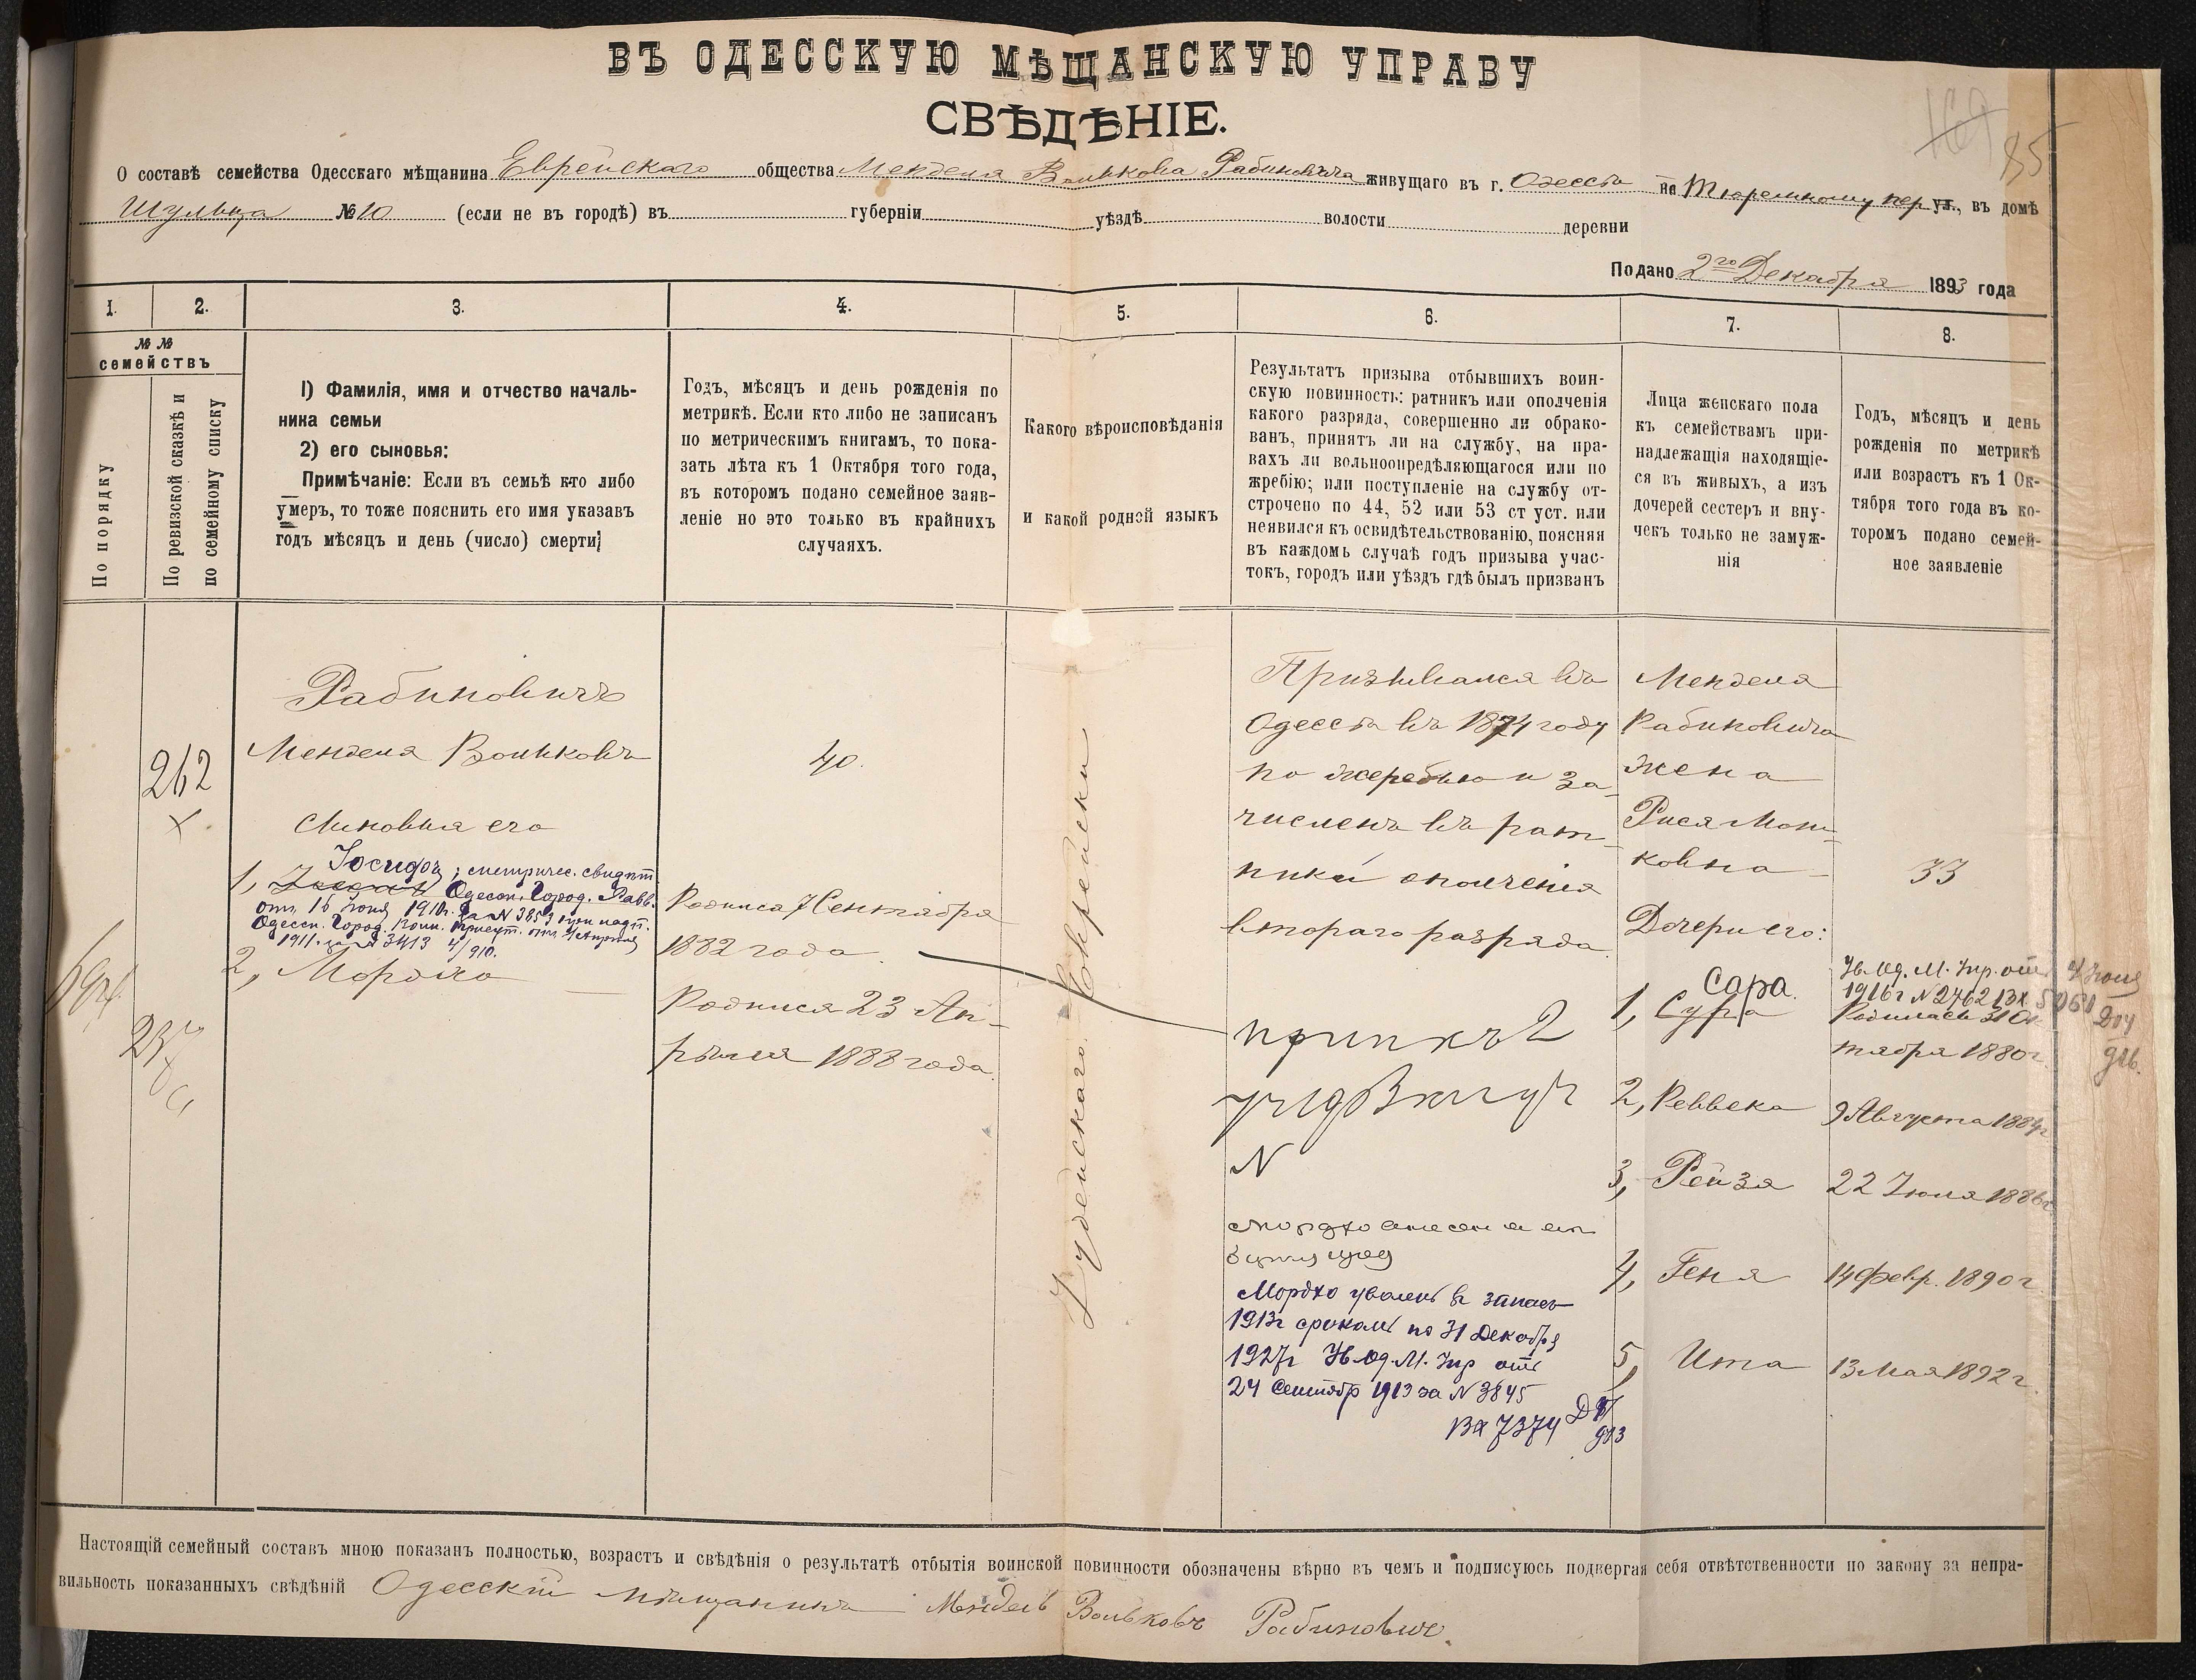 ВЪ ОДЕССКУЮ МѢЩАНСКУЮ УПРАВУ
СВѢДѢНІЕ.
169 85
О составѣ семейства Одесскаго мѣщанина Еврейскаго общества Менделя Волькова Рабиновича живущаго въ г. Одессѣ по Тюремному пер ул., въ домѣ
Шульца № 10 (если не въ городѣ) въ губерніи уѣздѣ волости деревни
Подано 2го Декабря 1893 года
1. 2. 3. 4. 5. 6. 7. 8.
№ №
семействъ
По порядку
По ревизской сказкѣ и
по семейному списку
1) Фамилія, имя и отчество началь-
ника семьи
2) его сыновья:
Примѣчаніе: Если въ семьѣ кто либо
умеръ, то тоже пояснить его имя указавъ
годъ мѣсяцъ и день (число) смерти;
Годъ, мѣсяцъ и день рожденія по
метрикѣ. Если кто либо не записанъ
по метрическимъ книгамъ, то пока-
зать лѣта къ 1 Октября того года,
въ которомъ подано семейное заяв-
леніе но это только въ крайнихъ
случаяхъ.
Какого вѣроисповѣданія
и какой родной языкъ
Результатъ призыва отбывшихъ воин-
скую повинность: ратникъ или ополченія
какого разряда, совершенно ли обрако-
ванъ, принятъ ли на службу, на пра-
вахъ ли вольноопредѣляющагося или по
жребію; или поступленіе на службу от-
строчено по 44, 52 или 53 ст уст. или
неявился къ освидѣтельствованію, поясняя
въ каждомъ случаѣ годъ призыва учас-
токъ, городъ или уѣздъ гдѣ былъ призванъ
Лица женскаго пола
къ семействамъ при-
надлежащія находящіе-
ся въ живыхъ, а изъ
дочерей сестеръ и вну-
чекъ только не замуж-
нія
Годъ, мѣсяцъ и день
рожденія по метрикѣ
или возрастъ къ 1 Ок-
тября того года въ ко-
торомъ подано семей-
ное заявленіе
262
Рабиновичъ
Мендель Вольковъ
Сыновья его
Іосифъ; метричес. свидѣт.
1, Одесск. Город. Равв.
отъ 16 Іюня 1910г. за N 3859 при надп.
Одесск. Город. Воин. Присут. отъ Апрѣля
1911 г. за N 3413
2, Мордко
40.
Родился 7 Сентября
1882 года
Родился 23 Ап-
рѣля 1888 года.
Іудейскаго. Еврейскій
Призывался въ
Одессѣ въ 1874 году
по жеребью и за-
численъ въ рат-
ники ополченія
втораго разряда
N
Мордко уволенъ в запасъ
1913г срокомъ по 31 Декабря
1927г Ув. Од. М. Упр отъ
24 Сентябр 1913 за N 3845
Вх 7374
913
Менделя
Рабиновича
жена
Рися Мош-
ковна
33
Дочери его:
Сара.
1, Сура
Ув. Од. М. Упр. отъ 4 Іюня
1916г N 2462 Вх 5061
Родилась 31 Ок-
тября 1880г.
2, Реввека 9 Августа 1884г
3, Рейзя 22 Іюля 1886г
4, Геня 14 Февр. 1890г.
5, Ита 13 Мая 1892г.
Настоящій семейный составъ мною показанъ полностью, возрастъ и свѣдѣнія о результатѣ отбытія воинской повинности обозначены вѣрно въ чемъ и подписуюсь подвергая себя отвѣтственности по закону за непра-
вильность показанныхъ свѣдѣній Одесскій мѣщанинъ Мендель Вольковъ Рабиновичъ.